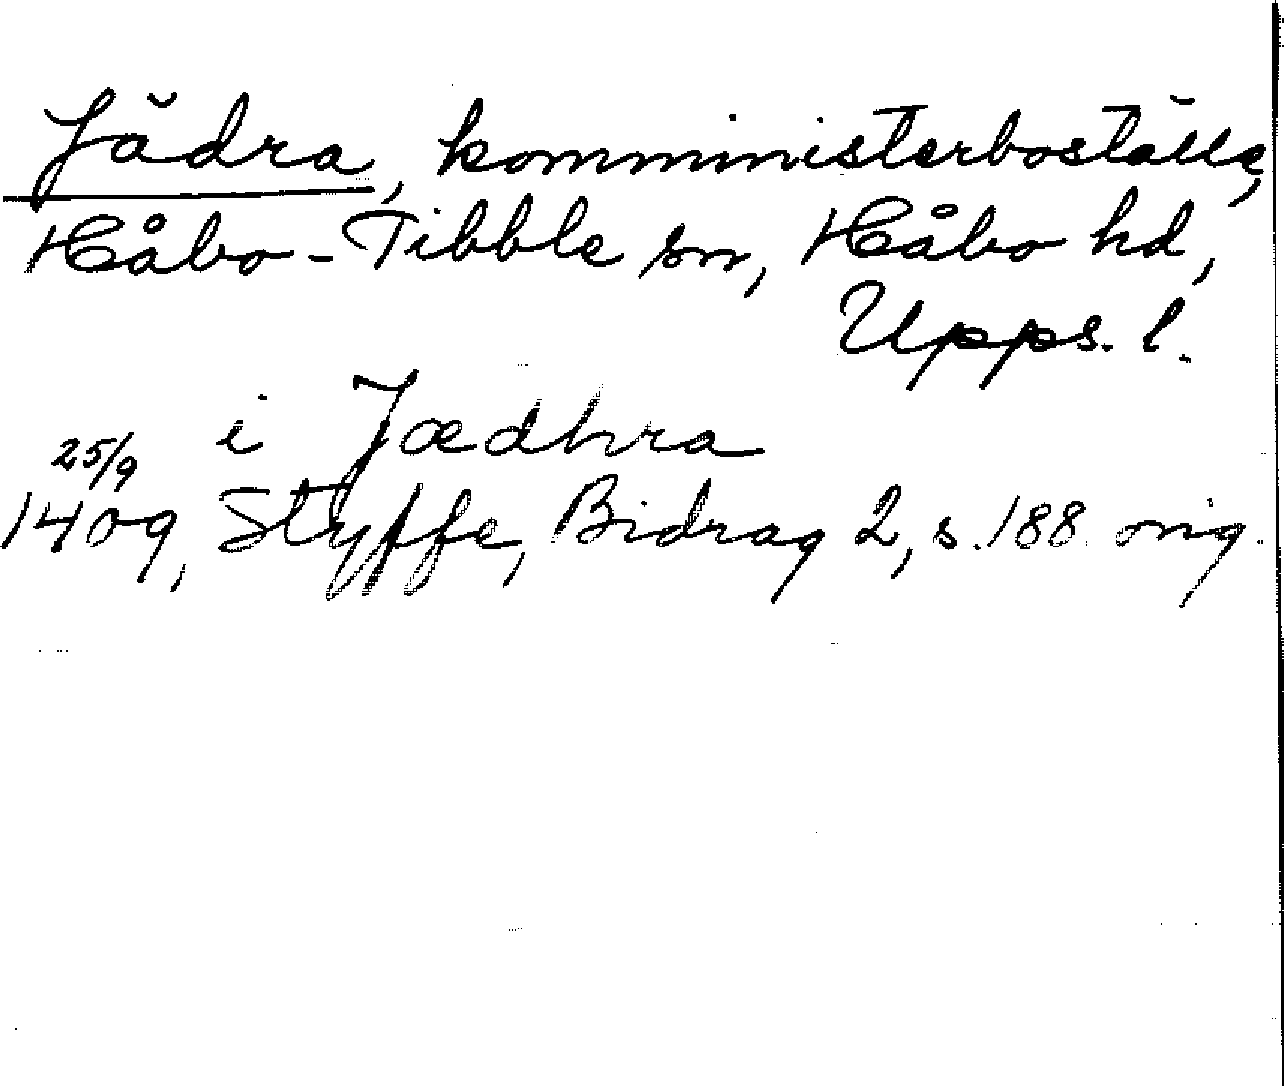 Jädra, komministerboställe,
Håbo-Tibble sn, Håbo hd,
Upps. l.
i Jædhra
25/9
1409, Styffe, Bidrag 2, s. 188. orig.